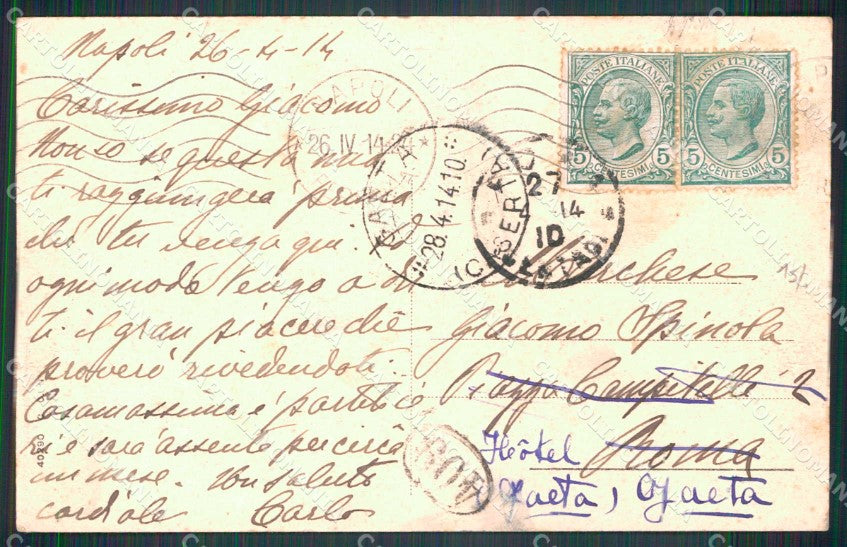 Napoli 26-4-14
Carissimo Giacomo
Non so se questa mia
ti raggiungerà prima
che tu venga qui. Ad
ogni modo Vengo a dir
ti il gran piacere che
proverò rivedendoti.
Casamassima è partito
e sarà assente per circa
un mese. Un saluto
cordiale Carlo
POSTE ITALIANE
5 CENTESIMI 5
POSTE ITALIANE
5 CENTESIMI 5
NAPOLI
26.IV.14
GAETA
28.4.14.10
(CASERTA)
27
14
10
Marchese
Giacomo Spinola
Piazza Campitelli 2
Roma
Hôtel
Gaeta, Gaeta
40290
CARTOLINOMANIA